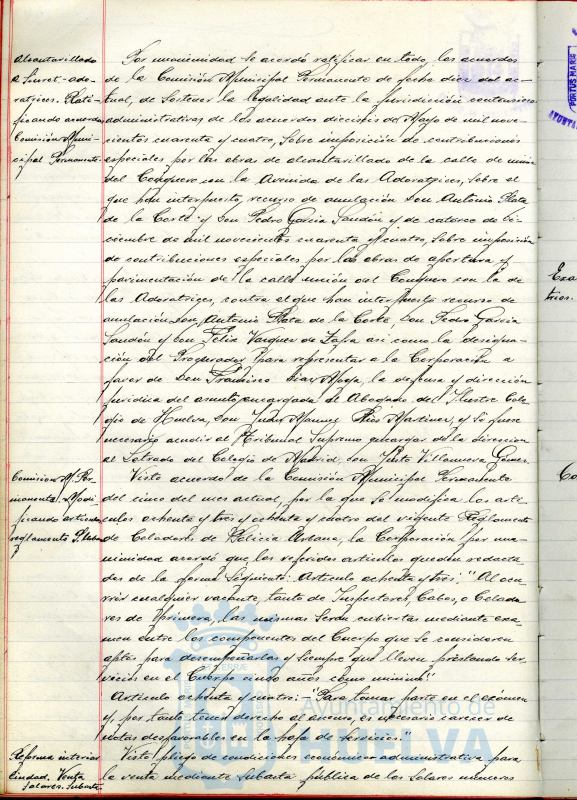 Alcantarillado
Por unanimidad se acordó ratificar en todo, los acuerdos
de la Comisión Municipal Permanente de fecha diez del ac-
tual, de sostener la legalidad ante la jurisdicción contencioso
administrativas de los acuerdos dieciseis de Mayo de mil nove-
cientos cuarenta y cuatro, sobre imposición de contribuciones
especiales, por las obras de alcantarillado de la calle de unión
del Conquero con la Avenida de las Adoratrices, sobre el
que han interpuesto, recurso de anulación Don Antonio Plata
de la Corte y Don Pedro Garcia Jandón y de catorce de Di-
ciembre de mil novecientos cuarenta y cuatro, sobre imposición
de contribuciones especiales por las obras de apertura y
pavimentación de la calle unión del Conquero con la de
las Adoratrices, contra el que han interpuesto recurso de
anulación Don Antonio Plata de la Corte, Don Pedro Garcia
Jandón y Don Felix Vazquez de Zafra asi como la designa-
ción del Procurador para representar a la Corporación a
favor de Don Francisco Diaz Moya, la defensa y dirección
juridica del asunto encargada al Abogado del Ilustre Cole-
gio de Huelva, Don Rios Martinez, y si fuese
necesario acudir al Tribunal Supremo encargar de la dirección
al Letrado del Colegio de Madrid, Don Villanueva Gomez.
Comision M. Per-
manente. Modi-
ficando articulos
reglamento P. Urbana
Visto acuerdo de la Comisión Municipal Permanente
del cinco del mes actual, por la que se modifica los arti-
culos ochenta y tres y ochenta y cuatro del vigente Reglamento
de Celadores de Policia Urbana, la Corporación por una-
nimidad acordó que los referidos articulos queden redacta-
dos de la forma siguiente: Articulo ochenta y tres; "Al ocu-
rrir cualquier vacante, tanto de Inspectores, Cabos, o Celado-
res de primera, las mismas serán cubiertas mediante exa-
men entre los componentes del Cuerpo que se consideren
aptos para desempeñarlas y siempre que lleven prestando ser-
vicios en el Cuerpo cinco años como minimo".
Articulo ochenta y cuatro: - "Para tomar parte en el examen
y, por tanto tener derecho al ascenso, es necesario carecer de
notas desfavorables en la hoja de servicios."
Reforma interior
Ciudad. Venta
solares. Subasta
Visto pliego de condiciones economico administrativa para
la venta mediante subasta pública de los solares números
Ayuntamiento de
HUELVA